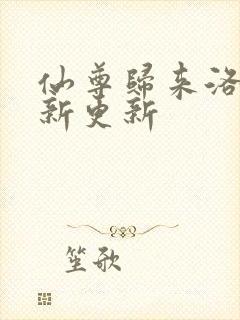 仙尊歸来洛
新更新
笙歌